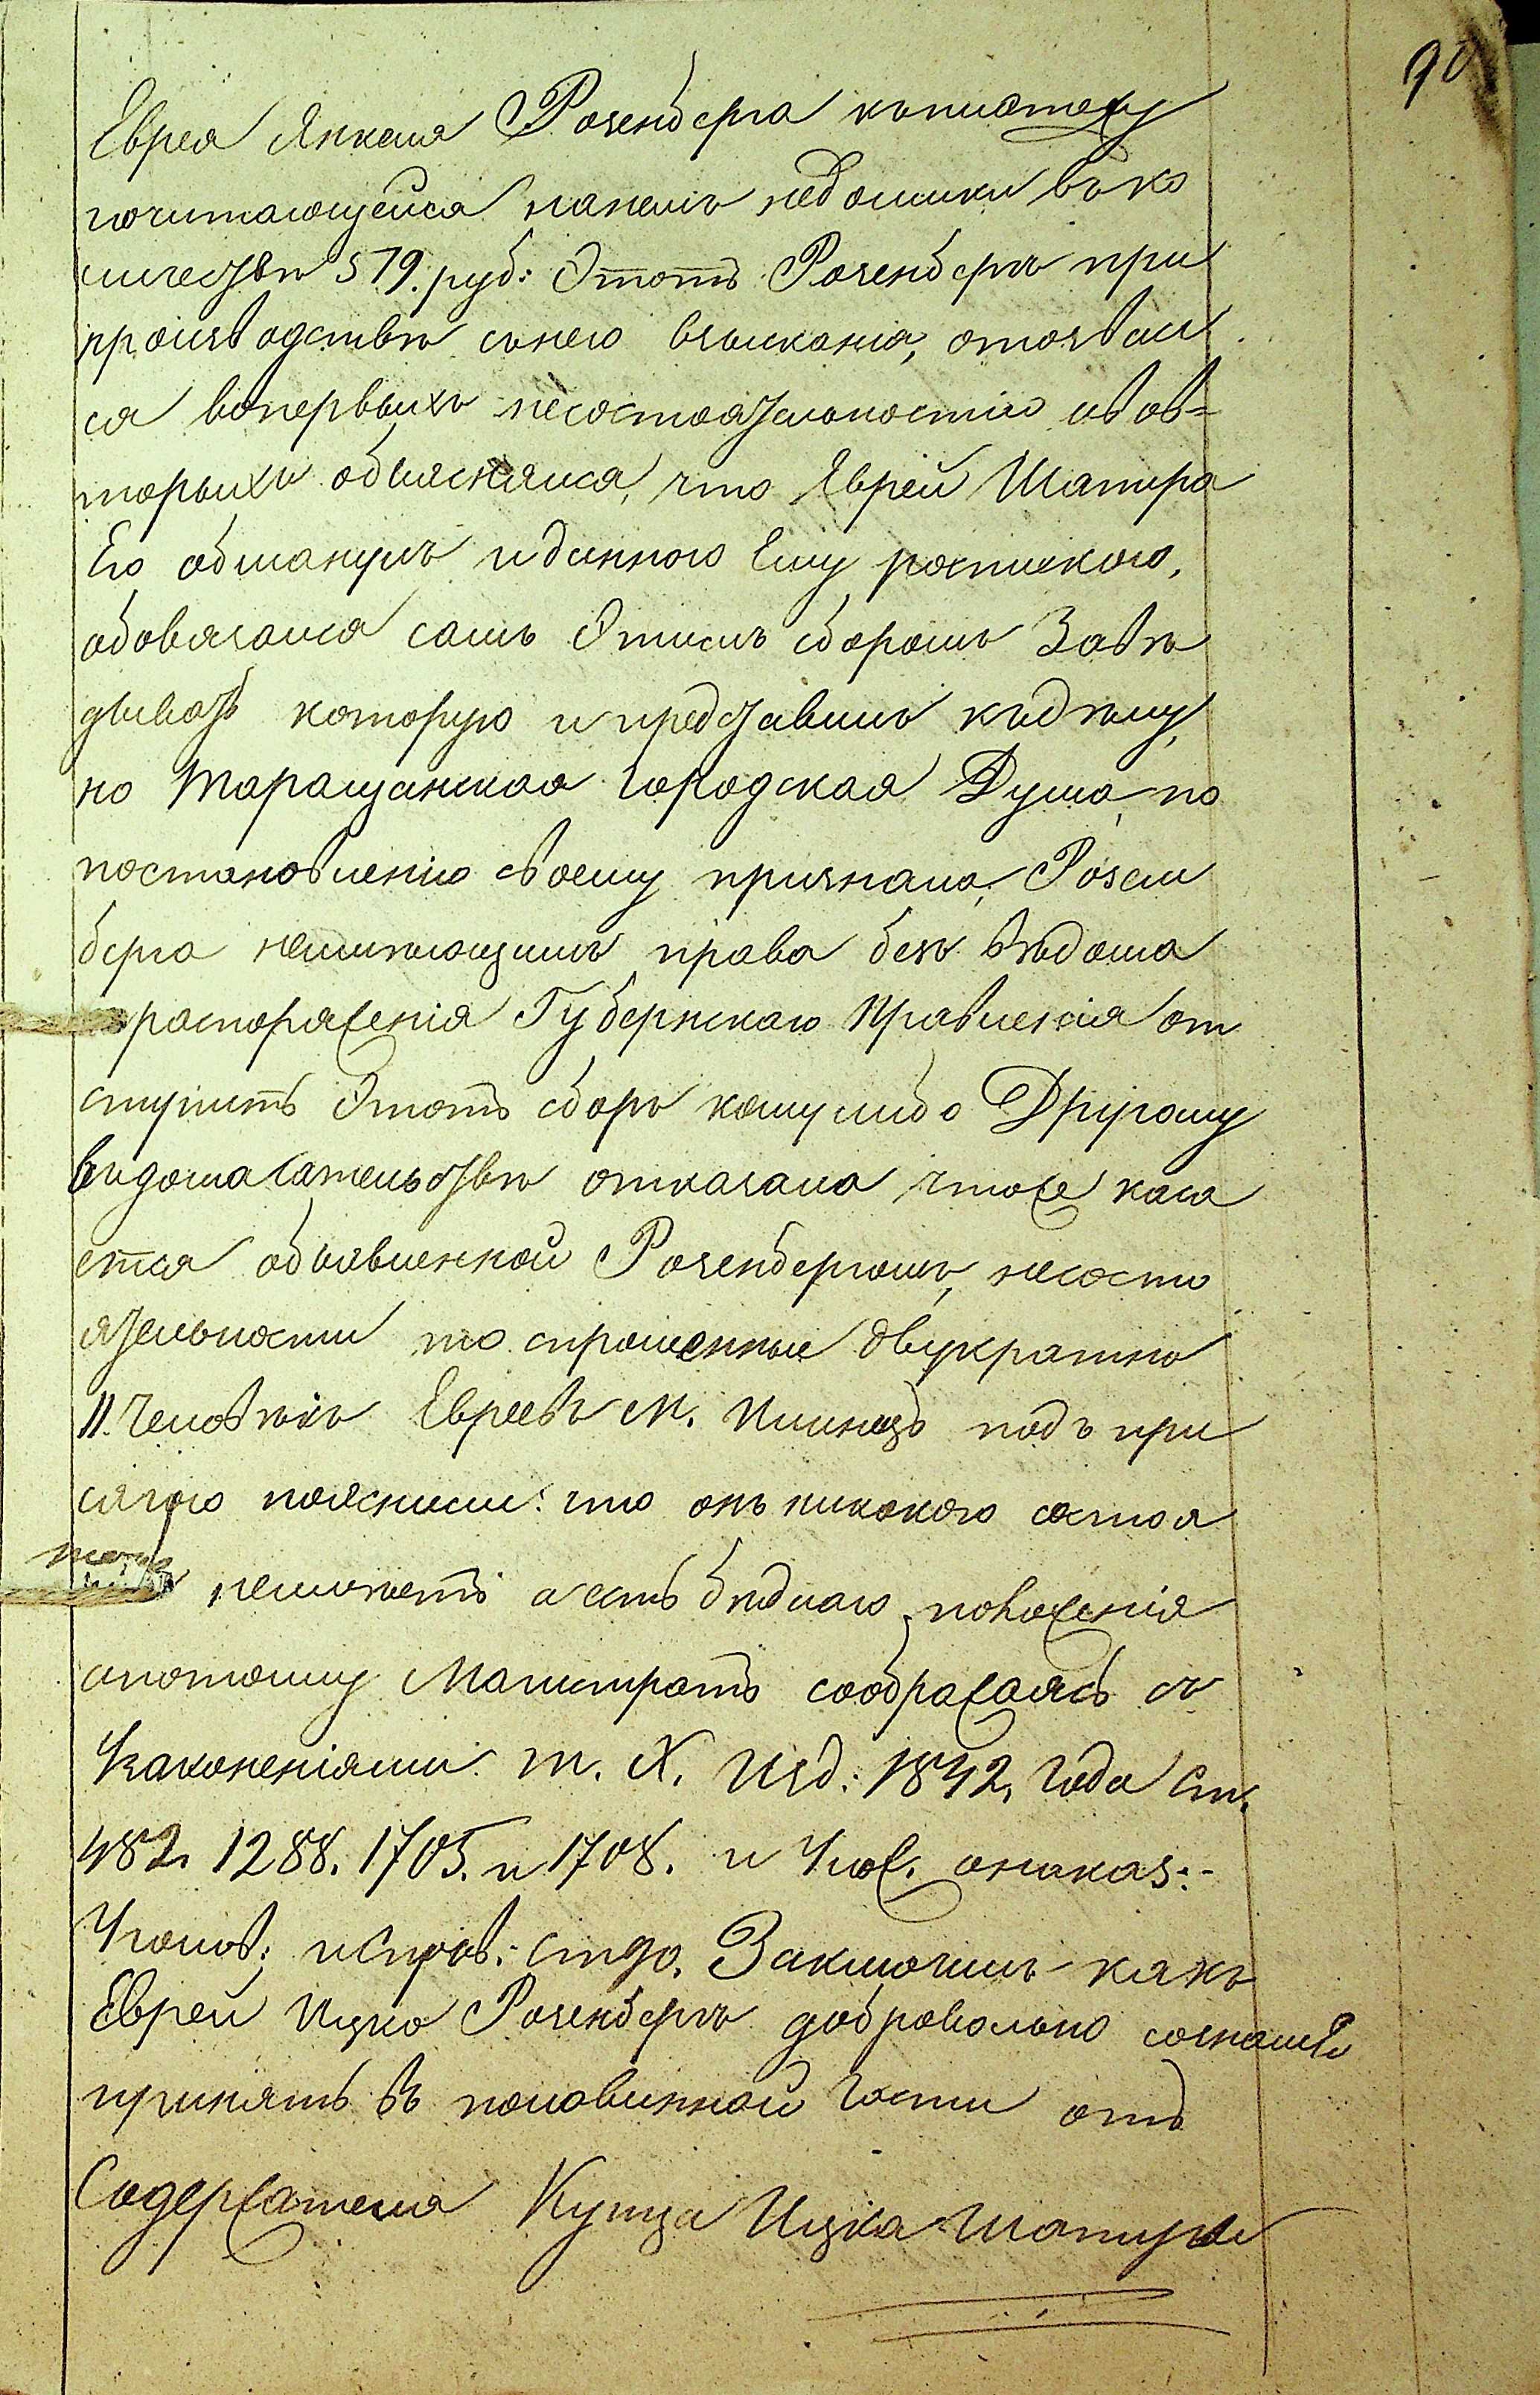 90
Еврея Янкеля Розенберга къплатежу
почитающейся нанемъ недоимки въко
личествѣ 579. руб: Этотъ Розенбергъ при
производствѣ снего взысканія, отозвал
ся вопервыхъ несостоятельностію ивов=
торыхъ объяснялся, что Еврей Шапира
Его обманулъ иданною Ему роспискою,
обовязался самъ Этимъ сборомъ Завѣ
дывать которую и представилъ къдѣлу,
но Таращанская Городская Дума, по
постановленію своему признала, Розен
берга неимѣющимъ права безъ вѣдома
распоряженія Губернскаго Правленія от
ступить Этотъ сборъ комулибо Другому
видомагательствѣ отказала чтоже каса
ется объявленной Розенбергомъ, несосто
ятельности то спрошенные двукратно
11. Человѣкъ Евреевъ М. Илинецъ подъ при
сягою пояснили: что онъ никакого состоя
неимѣетъ аесть бѣднаго положенія
апотому Магистратъ соображаясь съ
Узаконеніями т. X. Изд: 1842, Года Ст.
482. 1288. 1705. и 1708. и Улож. онаказ:-
Уголов: иСправ: Заключилъ какъ
Еврей Ицко Розенбергъ добровольно согнался
принять въ половинной Части отъ
Содержателя Купца Ицка Шапиры